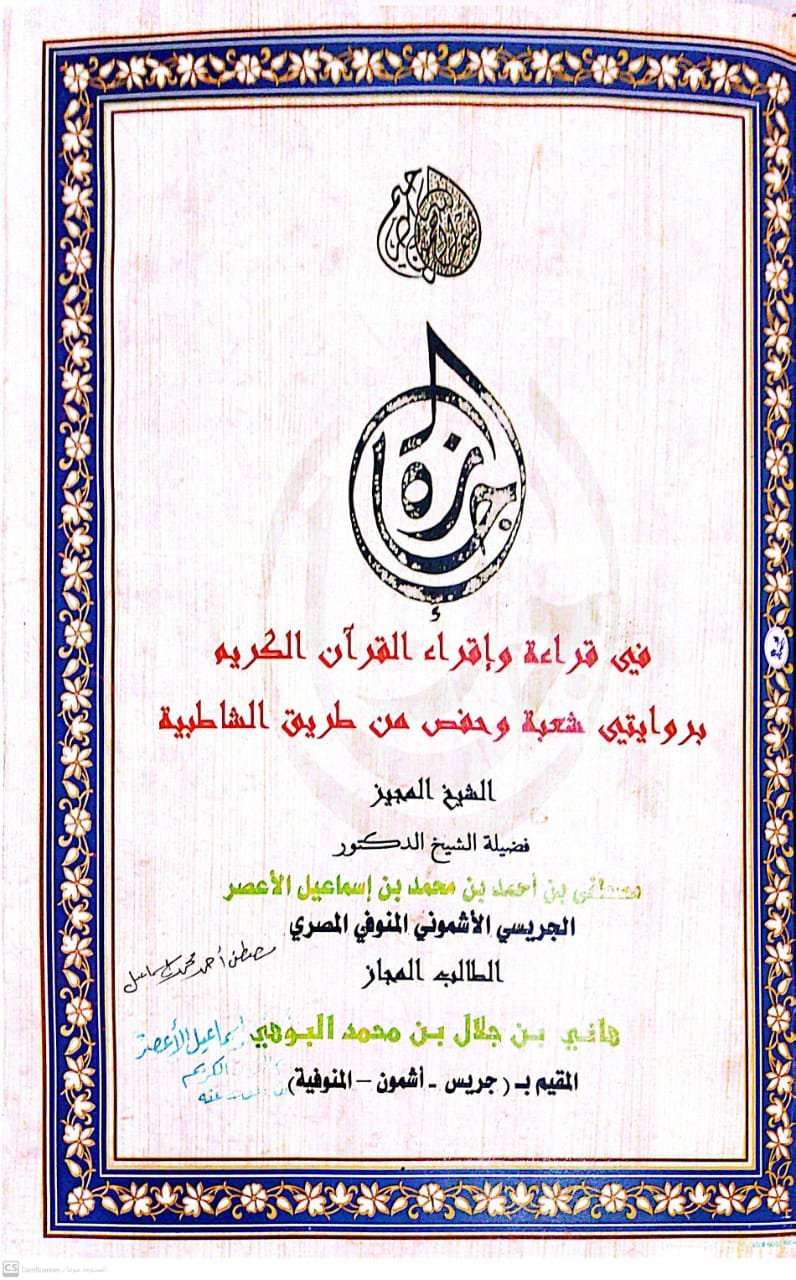 بسم الله الرحمن الرحيم
إجازة
في قراءة وإقراء القرآن الكريم
بروايتي شعبة وحفص من طريق الشاطبية
الشيخ المجيز
فضيلة الشيخ الدكتور
مصطفى بن أحمد بن محمد بن إسماعيل الأعصر
الجريسي الأشموني المنوفي المصري
مصطفى أحمد محمد إسماعيل
الطالب المجاز
هاني بن جلال بن محمد البوهي
إسماعيل الأعصر
المقيم بـ ( جريس - أشمون – المنوفية)
الكريم
عنه
CS CamScanner